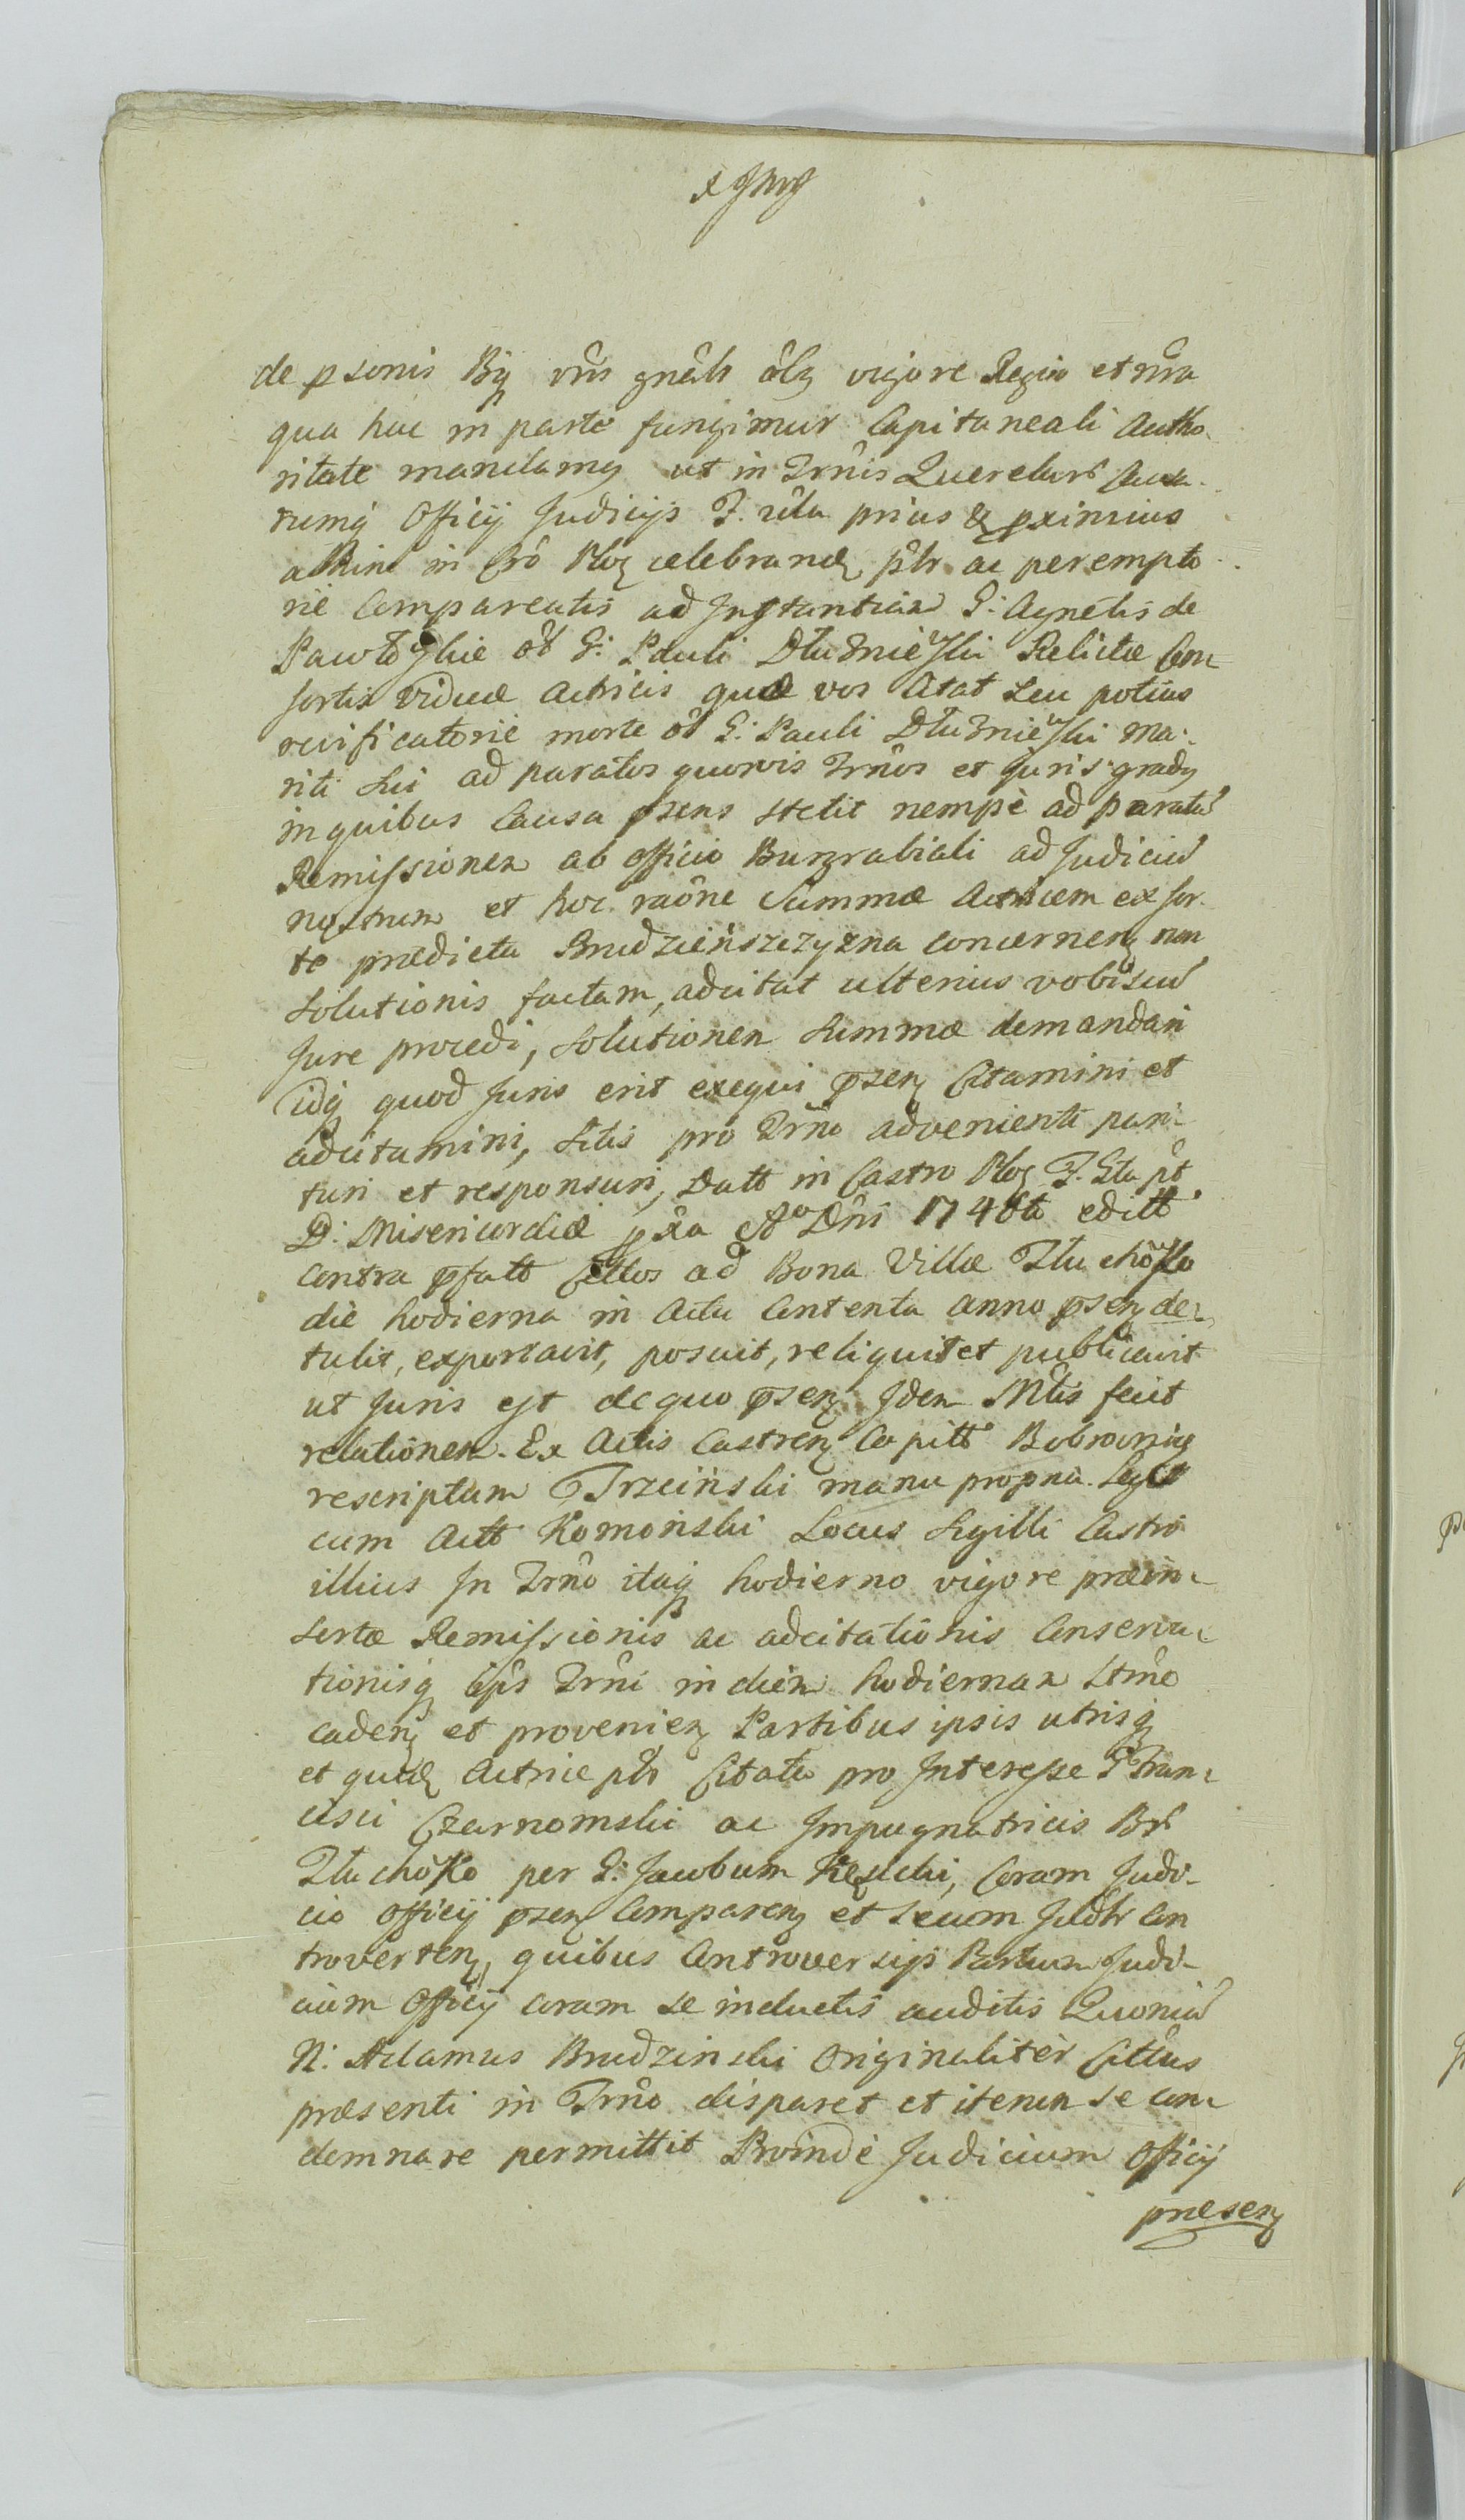 de psonis Bq vris gnalis olz vigore Regia et nra
qua hac in parte fungimur Capitaneali Autho-
ritate mandamq ut in Trnis Querelars Causa-
rumq Officij Judicijs F. prius & pximius
abhinc in Cro Ploc celebrand pltr ac perempto-
rie Compareatis ad Instantiam G: Agnetis de
Pawłoskie ol G: Pauli Dłuzniewski Relictæ Con-
sortis Viduæ Actricis quæ vos Citat seu potius
reivificatorie morte ol G: Pauli Dłuzniewski Ma-
riti sui ad paratos quosvis Trnos et Juris gradq
in quibus Causa psens stetit nempè ad paratā
Remissionem ab officio Burgrabiali ad Judiciū
nostrum et hoc raone Summæ Actricem ex sor-
te prædicta Brudzieńszczyzna concernen non
solutionis factam, adcitat ulterius vobiscū
Jure procedi, solutionem summæ demandari
idq quod Juris erit exequi psen Citamini et
adcitamini, sitis pro Trno advenienti pari-
turi et responsuri, Datt in Castro Ploc F. 2da pt
D: Misericordiæ pxa Ao Dni 1746to editt
contra pfatt Cittos ad Bona Villæ Tłuchowko
die hodierna in Actu Contenta anno psen de-
tulit, exportavit, posuit, reliquit et publicavit
ut Juris est de quo psen Idem Mtlis fecit
relationem. Ex Actis Castren Capitt Bobrownicen
rescriptum Trzciński manu propria. Legit
cum Actt Komoński Locus Sigilli Castri
illius In Trno itaq hodierno vigore præin-
sertæ Remissionis ac adcitationis Conserva-
tionisq ipis Trni in diem hodiernam Stmo
caden et provenien Partibus ipsis utrisq
et quid Actrice pltr Citato pro Interesse G Fran-
cisci Czarnomski ac Impugnatricis Br
Tłuchowko per G: Jacobum Kęsicki, Coram Judi-
cio Officij psen Comparen et secum Jldltr Con
troverten, quibus Controversijs Partium Judi-
cium Officij coram se inductis auditis Quoniā
N: Adamus Brudzinski Originalitèr Cittus
præsenti in Trno disparet et iterum se con-
demnare permittit Proindè Judicium Officij
præsen